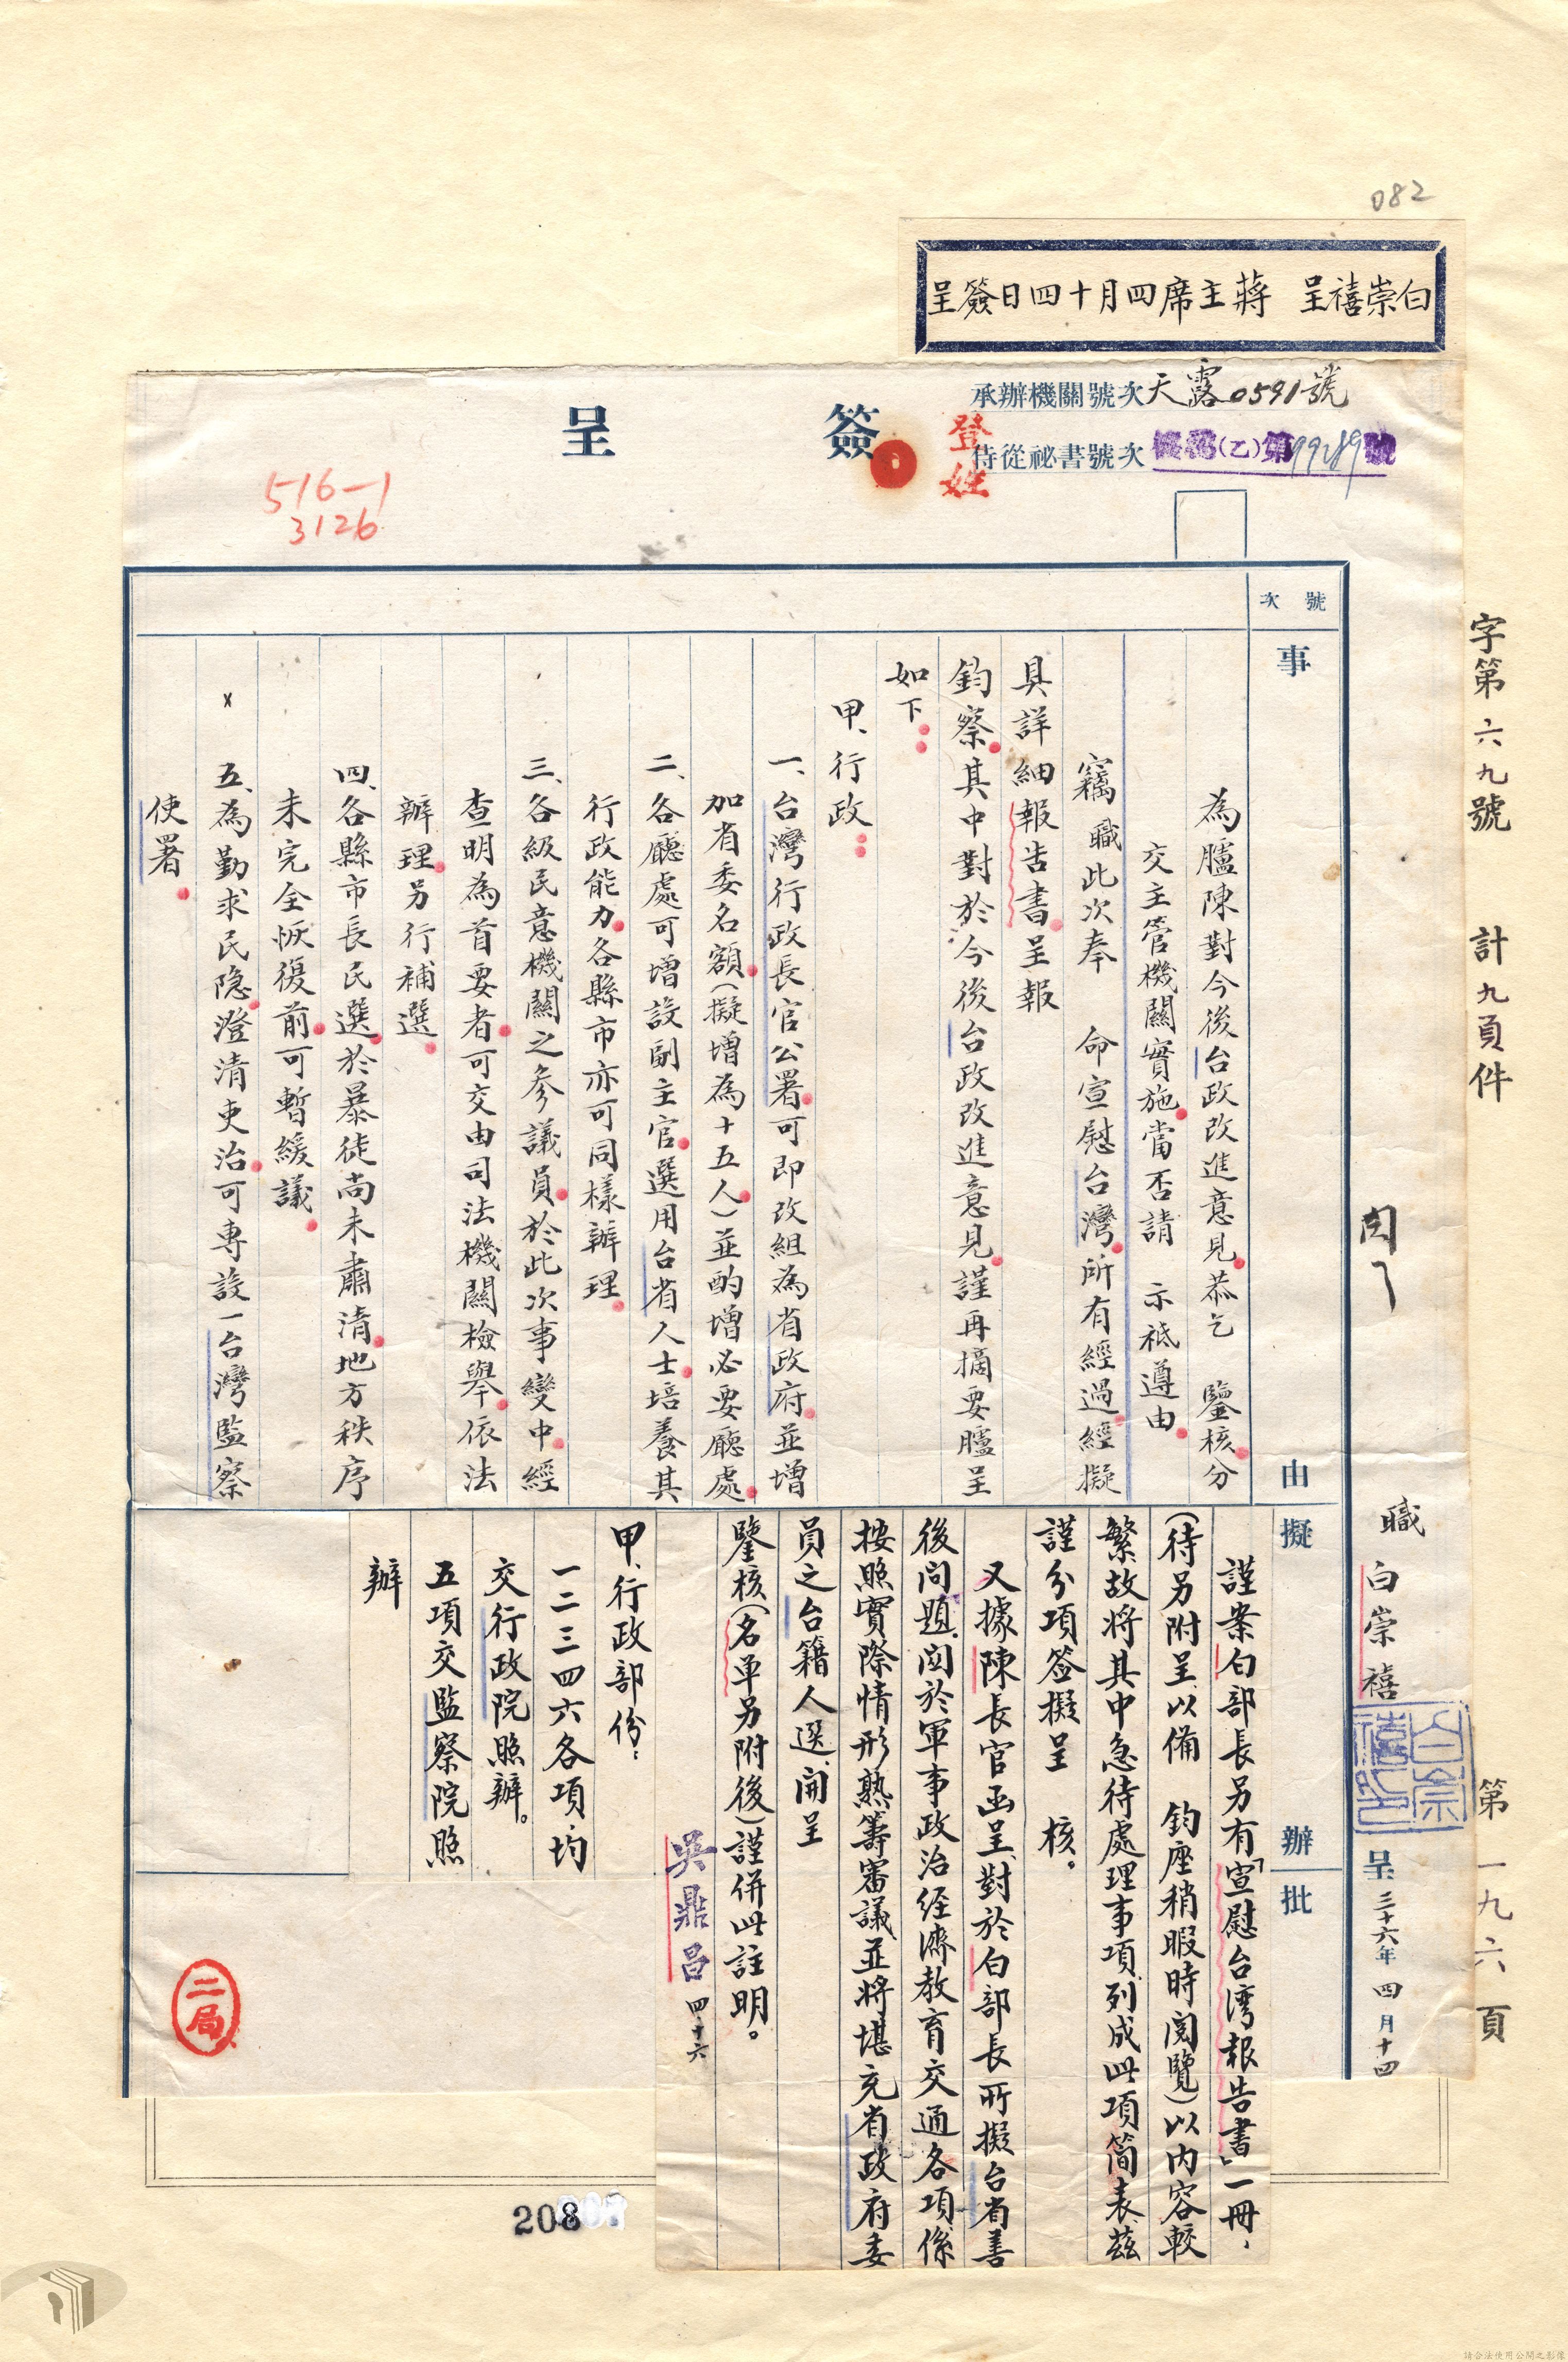 082
白崇禧呈 蔣主席四月十四日簽呈
承辦機關號次天露0591號
侍從祕書號次(乙)第99289號
登
簽呈
516-1
3126
字第六九號 計九頁件 第一九六頁
閱了
職白崇禧
白崇禧印
呈 三十六年四月十四
號次
事由
擬辦
批
為臚陳對今後台政改進意見恭乞 鑒核分
交主管機關實施當否請 示祗遵由
竊職此次奉 命宣慰台灣所有經過經擬
具詳細報告書呈報
鈞察其中對於今後台政改進意見謹再摘要臚呈
如下：
甲、行政：
一、台灣行政長官公署可即改組為省政府並增
加省委名額(擬增為十五人)並酌增必要廳處
二、各廳處可增設副主官選用台省人士培養其
行政能力各縣市亦可同樣辦理
三、各級民意機關之參議員於此次事變中經
查明為首要者可交由司法機關檢舉依法
辦理另行補選
四、各縣市長民選於暴徒尚未肅清地方秩序
未完全恢復前可暫緩議
x
五、為勤求民隱澄清吏治可專設一台灣監察
使署
謹案白部長另有「宣慰台湾報告書」一冊，
(待另附呈以備 鈞座稍暇時閱覽)以内容較
繁，故將其中急待處理事項，列成此項簡表，茲
謹分項簽擬呈 核。
又據陳長官函呈，對於白部長所擬台省善
後问題，関於軍事政治经濟教育交通各項，係
按照實際情形熟籌審議並將堪充省政府委
員之台籍人选，開呈
鑒核(名单另附後)謹併此註明。
吳鼎昌 四、十六
甲、行政部份：
一二三四六各項，均
交行政院照辦。
五項交監察院照
辦
二局
208
請合法使用公開之影像